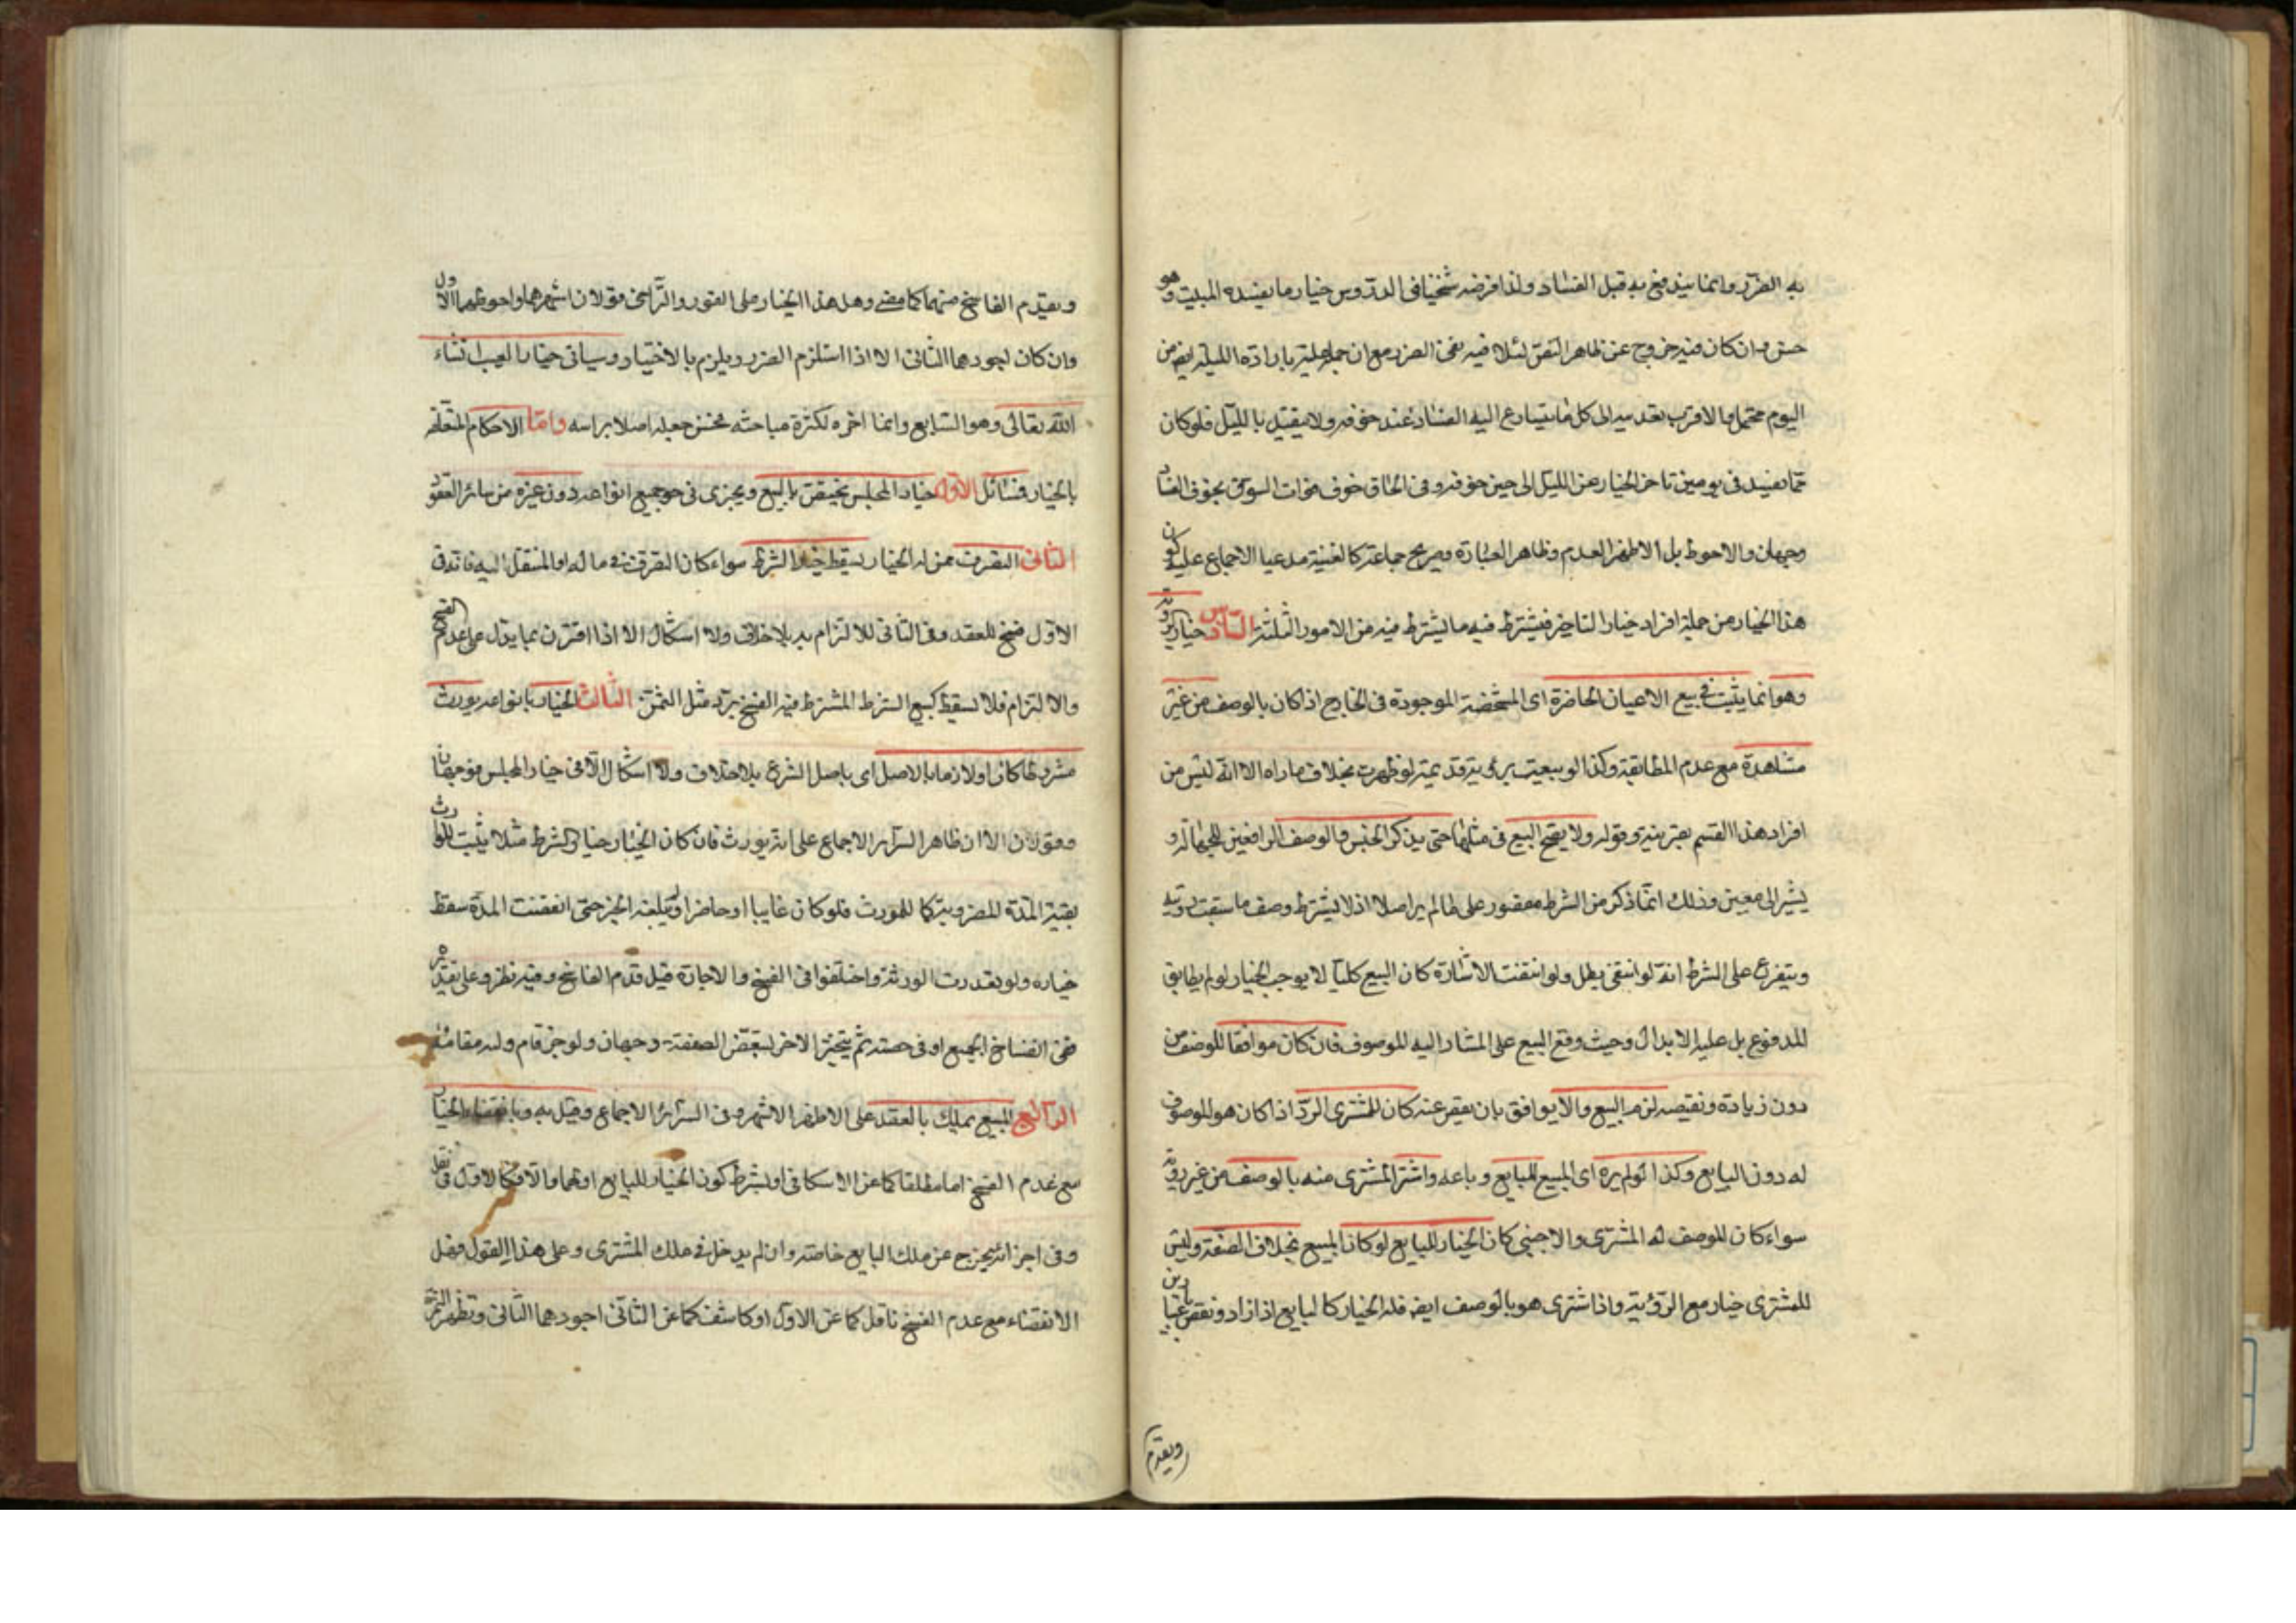 به الضرر وانما يندفع به قبل الفساد ولذا فرضه شيخنا في الدروس خيار ما يفسده المبيت وهو
حسن وان كان فيه خروج عن ظاهر النص لتلافيه بخبر الضرر مع ان حمله عليه بارادة الليلة ايضا من
اليوم محتمل والاقرب تعديه الى كل ما يتسارع اليه الفساد عند خوفه ولا يتقيد بالليل فلو كان
مما يفسد في يومين تاخر الخيار عن الليل الى حين خوفه وفي الحاق خوف فوات السوق بخوف الفساد
وجهان والاحوط بل الاظهر العدم وظاهر العبارة وصريح جماعة كالغنية مدعيا الاجماع عليه كون
هذا الخيار من جملة افراد خيار التاخير فيشترط فيه ما يشترط فيه من الامور الثلثة السادس خيار الروية
وهو انما يثبت في بيع الاعيان الحاضرة اى المشخصة الموجودة في الخارج اذا كان بالوصف من غير
مشاهدة مع عدم المطابقة وكذا لو بيعت برؤية قديمة لو ظهرت بخلاف ما راه الا انه ليس من
افراد هذا القسم بقرينة وقوله ولا يصح البيع في مثلها حتى يذكر الجنس والوصف الرافعين للجهالة و
يشير الى معين وذلك انما ذكر من الشرط مقصور على ما لم ير اصلا اذ لا يشترط وصف ما سبقت رؤيته
ويتفرع على الشرط انه لو انتفى بطل ولو انتفت الاشارة كان البيع كليا لا يوجب الخيار لو لم يطابق
المدفوع بل عليه الابدال وحيث وقع البيع على المشار اليه الموصوف فان كان موافقا للوصف من
دون زيادة ونقيصة لزم البيع والا يوافق بان نقص عنه كان للمشترى الرد اذا كان هو الموصوف
له دون البايع وكذا لو لم يره اى المبيع البايع وباعه واشترا المشترى منه بالوصف من غير روية
سواء كان للوصف له المشترى والاجنبي كان الخيار للبايع لو كان المبيع بخلاف الصفة وليس
للمشترى خيار مع الرؤية واذا اشترى هو بالوصف ايضا فله الخيار كالبايع اذا زاد ونقص باعتبارين
ويقدم
ويقدم الفاسخ منهما كما مضى وهل هذا الخيار على الفور والتراخى قولان اشهرهما واحوطهما الاول
وان كان اجودهما الثانى الا اذا استلزم الضرر ويلزم بالاختيار وسياتى خيار العيب انشاء
الله تعالى وهو السابع وانما اخره لكثرة مباحثه فحسن جعله اصلا براسه واما الاحكام المتعلقة
بالخيار فمسائل الاول خيار المجلس يختص بالبيع ويجرى في جميع انواعه دون غيره من سائر العقود
الثانى التصرف ممن له الخيار يسقط خيار الشرط سواء كان التصرف في ما له او المنتقل اليه فانه في
الاول فسخ للعقد وفي الثانى للالتزام به بلا خلاف ولا اشكال الا اذا اقترن بما يدل على عدم الفسخ
والالتزام فلا يسقط كبيع الشرط المشترط فيه الفسخ برد مثل الثمن الثالث الخيار بانواعه يورث
مشروطا كان او لازما بالاصل اى باصل الشرع بلا خلاف ولا اشكال الا في خيار المجلس فوجهان
وقولان الا ان ظاهر السرائر الاجماع على انه يورث فان كان الخيار خيار الشرط مثلا يثبت للوارث
بقية المدة المضروبة كما للمورث فلو كان غايبا او حاضرا ولم يبلغه الخبر حتى انقضت المدة سقط
خياره ولو تعددت الورثة واختلفوا في الفسخ والاجازة قيل قدم الفاسخ وفيه نظر وعلى تقديره
ففي انفساخ الجميع او في حصته ثم يتخير الاخر لتبعض الصفقة وجهان ولو جن قام وليه مقامه
الرابع المبيع يملك بالعقد على الاظهر الاشهر وفي السرائر الاجماع وقيل به وبانقضاء الخيار
مع عدم الفسخ اما مطلقا كما عن الاسكافي او بشرط كون الخيار للبايع او لهما والا فكالاول
وفي اخر انه يخرج عن ملك البايع خاصة وان لم يدخل في ملك المشترى وعلى هذا القول فهل
الانقضاء مع عدم الفسخ ناقل كما عن الاول او كاشف كما عن الثانى اجودهما الثانى وتظهر الثمرة